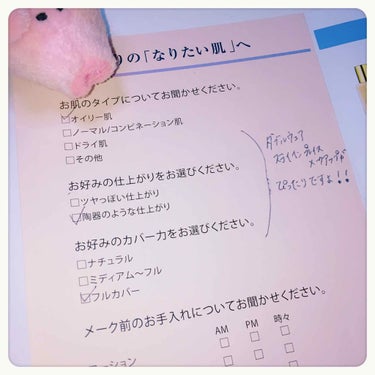 りの「なりたい肌」へ
お肌のタイプについてお聞かせください。
☑オイリー肌
□ノーマル/コンビネーション肌
□ドライ肌
□その他
お好みの仕上がりをお選びください。
□ツヤっぽい仕上がり
☑陶器のような仕上がり
お好みのカバー力をお選びください。
□ナチュラル
□ミディアム〜フル
☑フルカバー
ダブルウェア
ステイ イン プレイス
メークアップが
ぴったりですよ!!
メーク前のお手入れについてお聞かせください。
AM PM 時々
ーション □ □ □